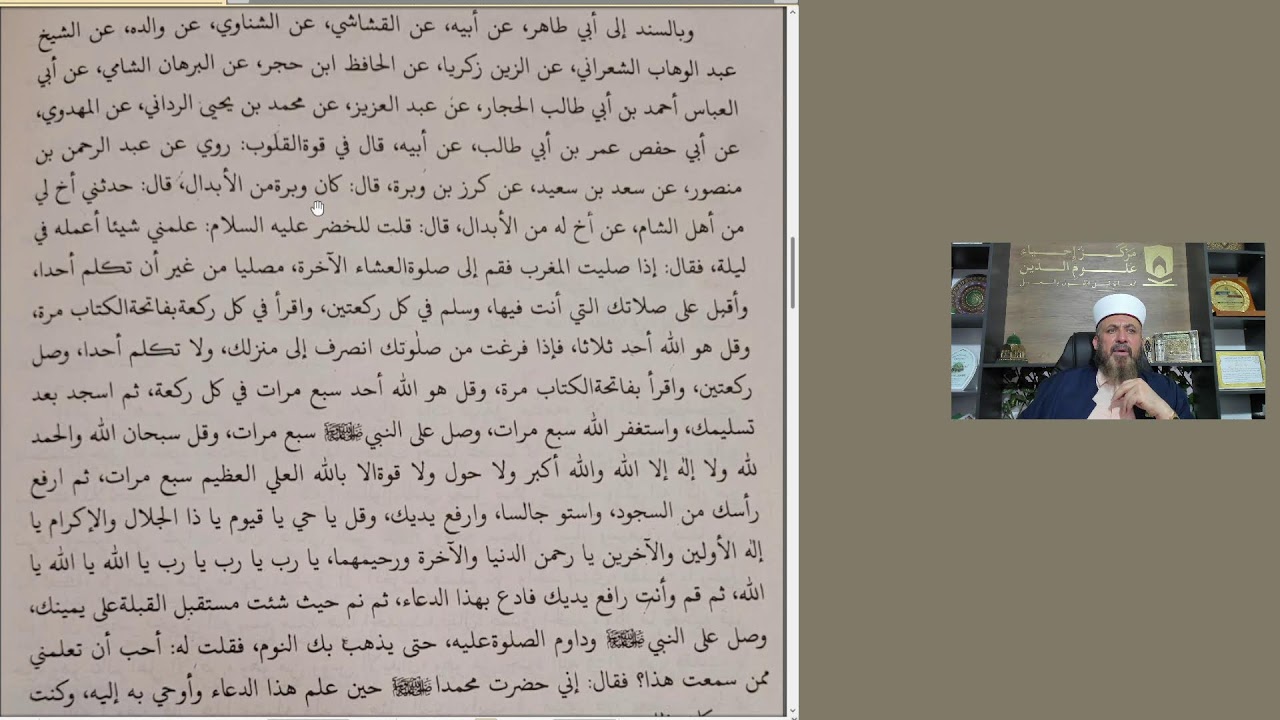 وبالسند إلى أبي طاهر، عن أبيه، عن القشاشي، عن الشناوي، عن والده، عن الشيخ
عبد الوهاب الشعراني، عن الزين زكريا، عن الحافظ ابن حجر، عن البرهان الشامي، عن أبي
العباس أحمد بن أبي طالب الحجار، عن عبد العزيز، عن محمد بن يحيى الرداني، عن المهدوي،
عن أبي حفص عمر بن أبي طالب، عن أبيه، قال في قوةالقلوب: روي عن عبد الرحمن بن
منصور، عن سعد بن سعيد، عن كرز بن وبرة، قال: كان وبرةمن الأبدال، قال: حدثني أخ لي
من أهل الشام، عن أخ له من الأبدال، قال: قلت للخضر عليه السلام: علمني شيئا أعمله في
ليلة، فقال: إذا صليت المغرب فقم إلى صلوةالعشاء الآخرة، مصليا من غير أن تكلم أحدا،
وأقبل على صلاتك التي أنت فيها، وسلم في كل ركعتين، واقرأ في كل ركعةبفاتحةالكتاب مرة،
وقل هو الله أحد ثلاثا، فإذا فرغت من صلٰوتك انصرف إلى منزلك، ولا تكلم أحدا، وصل
ركعتين، واقرأ بفاتحةالكتاب مرة، وقل هو الله أحد سبع مرات في كل ركعة، ثم اسجد بعد
تسليمك، واستغفر الله سبع مرات، وصل على النبيﷺ سبع مرات، وقل سبحان الله والحمد
لله ولا إلٰه إلا الله والله أكبر ولا حول ولا قوةالا بالله العلي العظيم سبع مرات، ثم ارفع
رأسك من السجود، واستو جالسا، وارفع يديك، وقل يا حي يا قيوم يا ذا الجلال والإكرام يا
إلٰه الأولين والآخرين يا رحمن الدنيا والآخرة ورحيمهما، يا رب يا رب يا رب يا الله يا الله يا
الله، ثم قم وأنت رافع يديك فادع بهذا الدعاء، ثم نم حيث شئت مستقبل القبلةعلى يمينك،
وصل على النبيﷺ وداوم الصلوةعليه، حتى يذهب بك النوم، فقلت له: أحب أن تعلمني
ممن سمعت هذا؟ فقال: إني حضرت محمداﷺ حين علم هذا الدعاء وأوحي به إليه، وكنت
مركز إحياء
علوم الدين